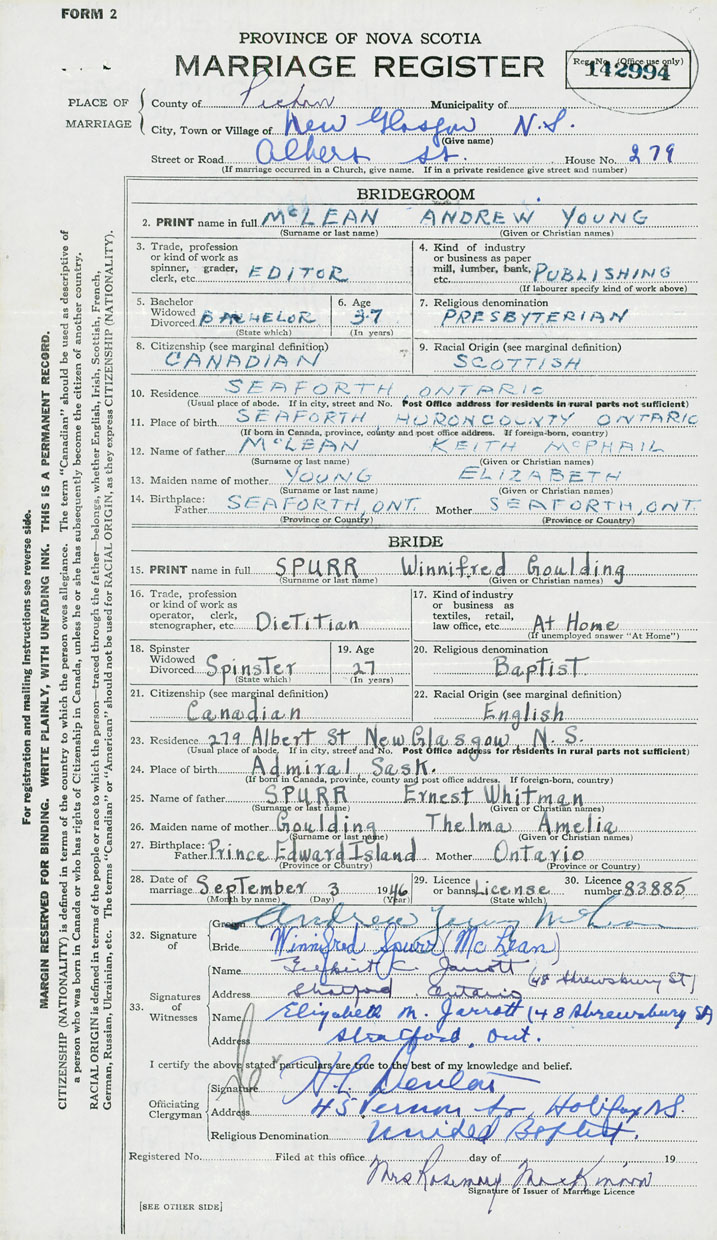 FORM 2
PROVINCE OF NOVA SCOTIA
MARRIAGE REGISTER
Reg. No. (Office use only)
142994
PLACE OF MARRIAGE
County of Pictou Municipality of
City, Town or Village of New Glasgow N.S.
(Give name)
Street or Road Albert St. House No. 279
(If marriage occurred in a Church, give name. If in a private residence give street and number)
BRIDEGROOM
2. PRINT name in full McLEAN ANDREW YOUNG
(Surname or last name) (Given or Christian names)
3. Trade, profession or kind of work as spinner, grader, clerk, etc. EDITOR
4. Kind of industry or business as paper mill, lumber, bank, etc. PUBLISHING
(If labourer specify kind of work above)
5. Bachelor Widowed Divorced BACHELOR
(State which)
6. Age 37
(In years)
7. Religious denomination
PRESBYTERIAN
8. Citizenship (see marginal definition)
CANADIAN
9. Racial Origin (see marginal definition)
SCOTTISH
10. Residence SEAFORTH, ONTARIO
(Usual place of abode. If in city, street and No. Post Office address for residents in rural parts not sufficient)
11. Place of birth SEAFORTH, HURON COUNTY ONTARIO
(If born in Canada, province, county and post office address. If foreign-born, country)
12. Name of father McLEAN KEITH McPHAIL
(Surname or last name) (Given or Christian names)
13. Maiden name of mother YOUNG ELIZABETH
(Surname or last name) (Given or Christian names)
14. Birthplace: Father SEAFORTH, ONT. Mother SEAFORTH, ONT.
(Province or Country) (Province or Country)
BRIDE
15. PRINT name in full SPURR Winnifred Goulding
(Surname or last name) (Given or Christian names)
16. Trade, profession or kind of work as operator, clerk, stenographer, etc. Dietitian
17. Kind of industry or business as textiles, retail, law office, etc. At Home
(If unemployed answer "At Home")
18. Spinster Widowed Divorced Spinster
(State which)
19. Age 27
(In years)
20. Religious denomination
Baptist.
21. Citizenship (see marginal definition)
Canadian
22. Racial Origin (see marginal definition)
English
23. Residence 279 Albert St New Glasgow N. S.
(Usual place of abode. If in city, street and No. Post Office address for residents in rural parts not sufficient)
24. Place of birth Admiral, Sask.
(If born in Canada, province, county and post office address. If foreign-born, country)
25. Name of father SPURR Ernest Whitman
(Surname or last name) (Given or Christian names)
26. Maiden name of mother Goulding Thelma Amelia
(Surname or last name) (Given or Christian names)
27. Birthplace: Father Prince Edward Island Mother Ontario
(Province or Country) (Province or Country)
28. Date of marriage September 3 1946
(Month by name) (Day) (Year)
29. License or banns License
(State which)
30. Licence number 83885
32. Signature of
Groom Andrew Young McLean
Bride Winnifred Spurr (McLean)
33. Signatures of Witnesses
Name C. Jarrott (48 Shrewsbury St)
Address Stratford Ontario
Name Elizabeth M. Jarrott (48 Shrewsbury St)
Address Stratford, Ont.
I certify the above stated particulars are true to the best of my knowledge and belief.
Officiating Clergyman
Signature H.L. Denton
Address 45 Vernon St, Halifax N.S.
Religious Denomination United Baptist.
Registered No. Filed at this office day of 19
Mrs Rosemary MacKinnon
Signature of Issuer of Marriage Licence
[SEE OTHER SIDE]
For registration and mailing instructions see reverse side.
MARGIN RESERVED FOR BINDING. WRITE PLAINLY, WITH UNFADING INK. THIS IS A PERMANENT RECORD.
CITIZENSHIP (NATIONALITY) is defined in terms of the country to which the person owes allegiance. The term "Canadian" should be used as descriptive of
a person who was born in Canada or who has rights of Citizenship in Canada, unless he or she has subsequently become the citizen of another country.
RACIAL ORIGIN is defined in terms of the people or race to which the person—traced through the father—belongs, whether English, Irish, Scottish, French,
German, Russian, Ukrainian, etc. The terms "Canadian" or "American" should not be used for RACIAL ORIGIN, as they express CITIZENSHIP (NATIONALITY).